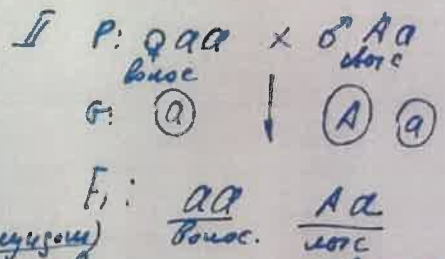 II P: ♀ aa × ♂ Aa
волос лыс
G: a A a
F₁: aa Aa
волос. лыс